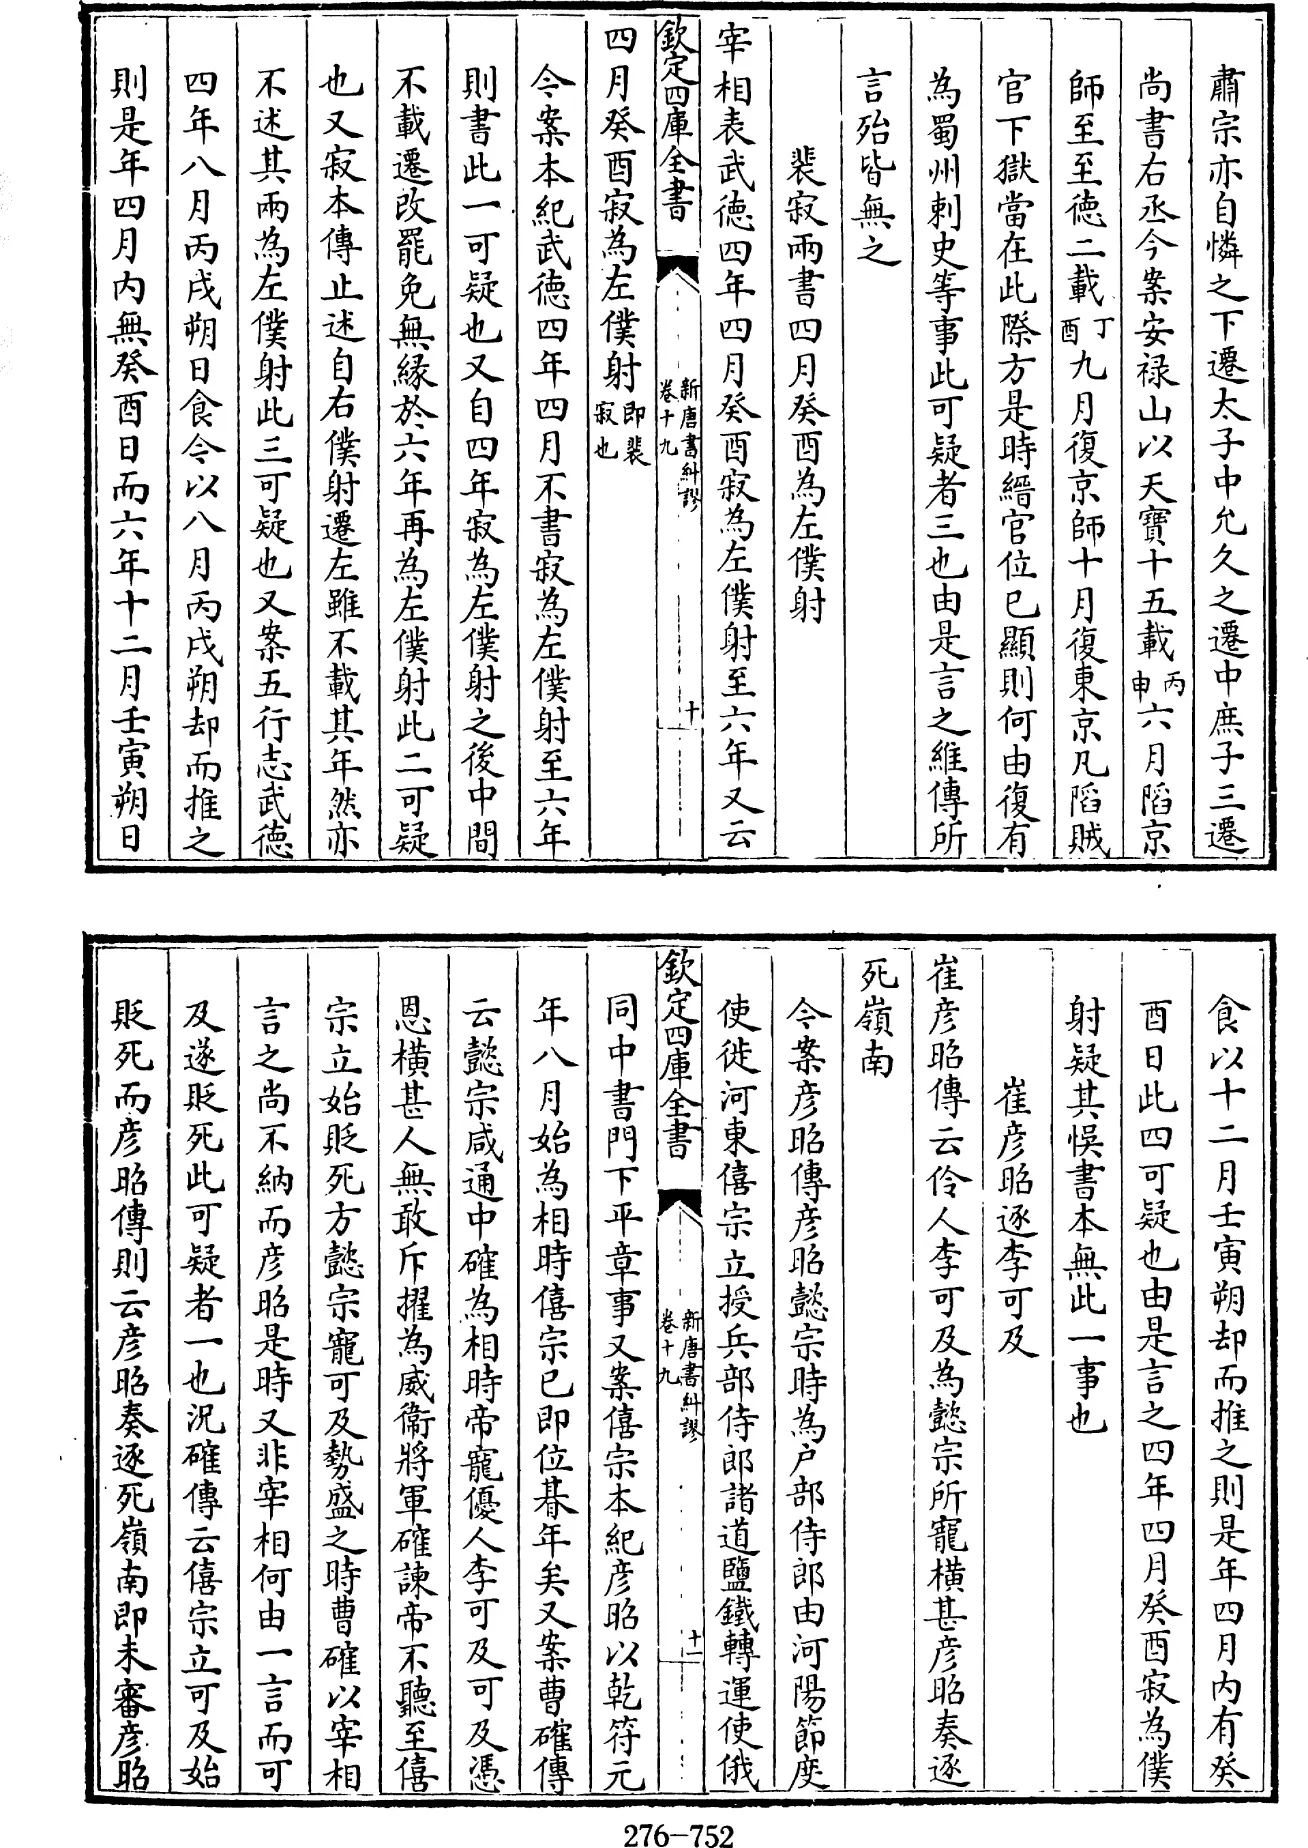 肅宗亦自憐之下遷太子中允久之遷中庶子三遷
尚書右丞今案安禄山以天寶十五載丙申六月陷京
師至至德二載丁酉九月復京師十月復東京凡陷賊
官下獄當在此際方是時縉官位已顯則何由復有
為蜀州刺史等事此可疑者三也由是言之維傳所
言殆皆無之
裴寂兩書四月癸酉為左僕射
宰相表武徳四年四月癸酉寂為左僕射至六年又云
欽定四庫全書
新唐書糾謬
卷十九
十
四月癸酉寂為左僕射即裴寂也
今案本紀武徳四年四月不書寂為左僕射至六年
則書此一可疑也又自四年寂為左僕射之後中間
不載遷改罷免無縁於六年再為左僕射此二可疑
也又寂本傳止述自右僕射遷左雖不載其年然亦
不述其兩為左僕射此三可疑也又案五行志武徳
四年八月丙戌朔日食今以八月丙戌朔却而推之
則是年四月内無癸酉日而六年十二月壬寅朔日
食以十二月壬寅朔却而推之則是年四月内有癸
酉日此四可疑也由是言之四年四月癸酉寂為僕
射疑其悞書本無此一事也
崔彦昭逐李可及
崔彦昭傳云伶人李可及為懿宗所寵横甚彦昭奏逐
死嶺南
今案彦昭傳彦昭懿宗時為户部侍郎由河陽節度
使徙河東僖宗立授兵部侍郎諸道鹽鐵轉運使俄
欽定四庫全書
新唐書糾謬
卷十九
十一
同中書門下平章事又案僖宗本紀彦昭以乾符元
年八月始為相時僖宗已即位朞年矣又案曹確傳
云懿宗咸通中確為相時帝寵優人李可及可及憑
恩横甚人無敢斥擢為威衞將軍確諫帝不聽至僖
宗立始貶死方懿宗寵可及勢盛之時曹確以宰相
言之尚不納而彦昭是時又非宰相何由一言而可
及遂貶死此可疑者一也況確傳云僖宗立可及始
貶死而彦昭傳則云彦昭奏逐死嶺南即未審彦昭
276-752